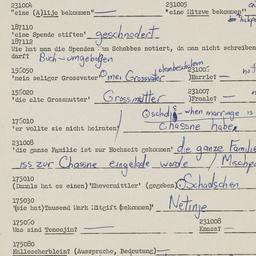 231004 231005
"eine (A)lije bekommen" "eine Mitzve bekommen"
187110
'eine Spende stiften' geschnodert
187112
Wie hat man die Spenden am Schabbes notiert, da man nicht schreiben
darf? Buch - umgebogen
165050 231001
"mein seliger Grossvater" mei Grossvater Harrle?
165020 231007
'die alte Grossmutter' Grossmutter Fraale?
when marriage is
175010
'er wollte sie nicht heiraten' Chassne habe
231008
'die ganze Familie ist zur Hochzeit gekommen' die ganze Familie
iss zur Chassne eingelade worde / Mischpo
175010
(Damals hat es einen) 'Eheverm\u200bittler' (gegeben) Schadschen
175030
'(sie hat) Tausend Mark Mitgift (bekommen)' Netinje
175060 231008
Was sind Tenoojim? Knass?
175080
Hillescherblein? (Aussprache, Bedeutung)